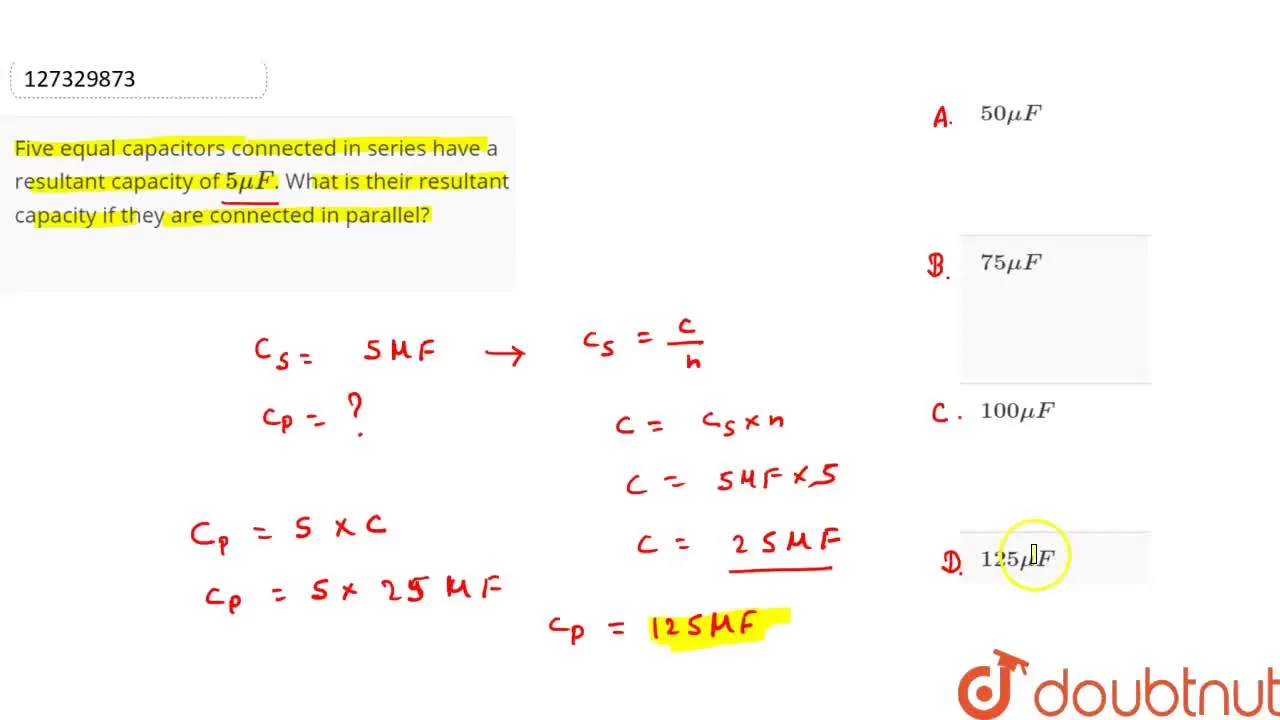 127329873
Five equal capacitors connected in series have a
resultant capacity of 5μF. What is their resultant
capacity if they are connected in parallel?
A. 50μF
B. 75μF
C. 100μF
D. 125μF
Cs = 5μF → Cs = C/n
Cp = ?
C = Cs × n
C = 5μF × 5
C = 25μF
Cp = 5 × C
Cp = 5 × 25μF
Cp = 125μF
doubtnut